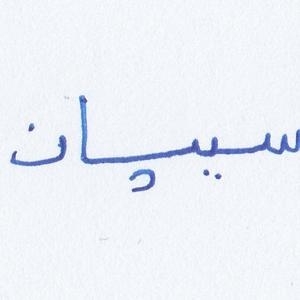 سيپان